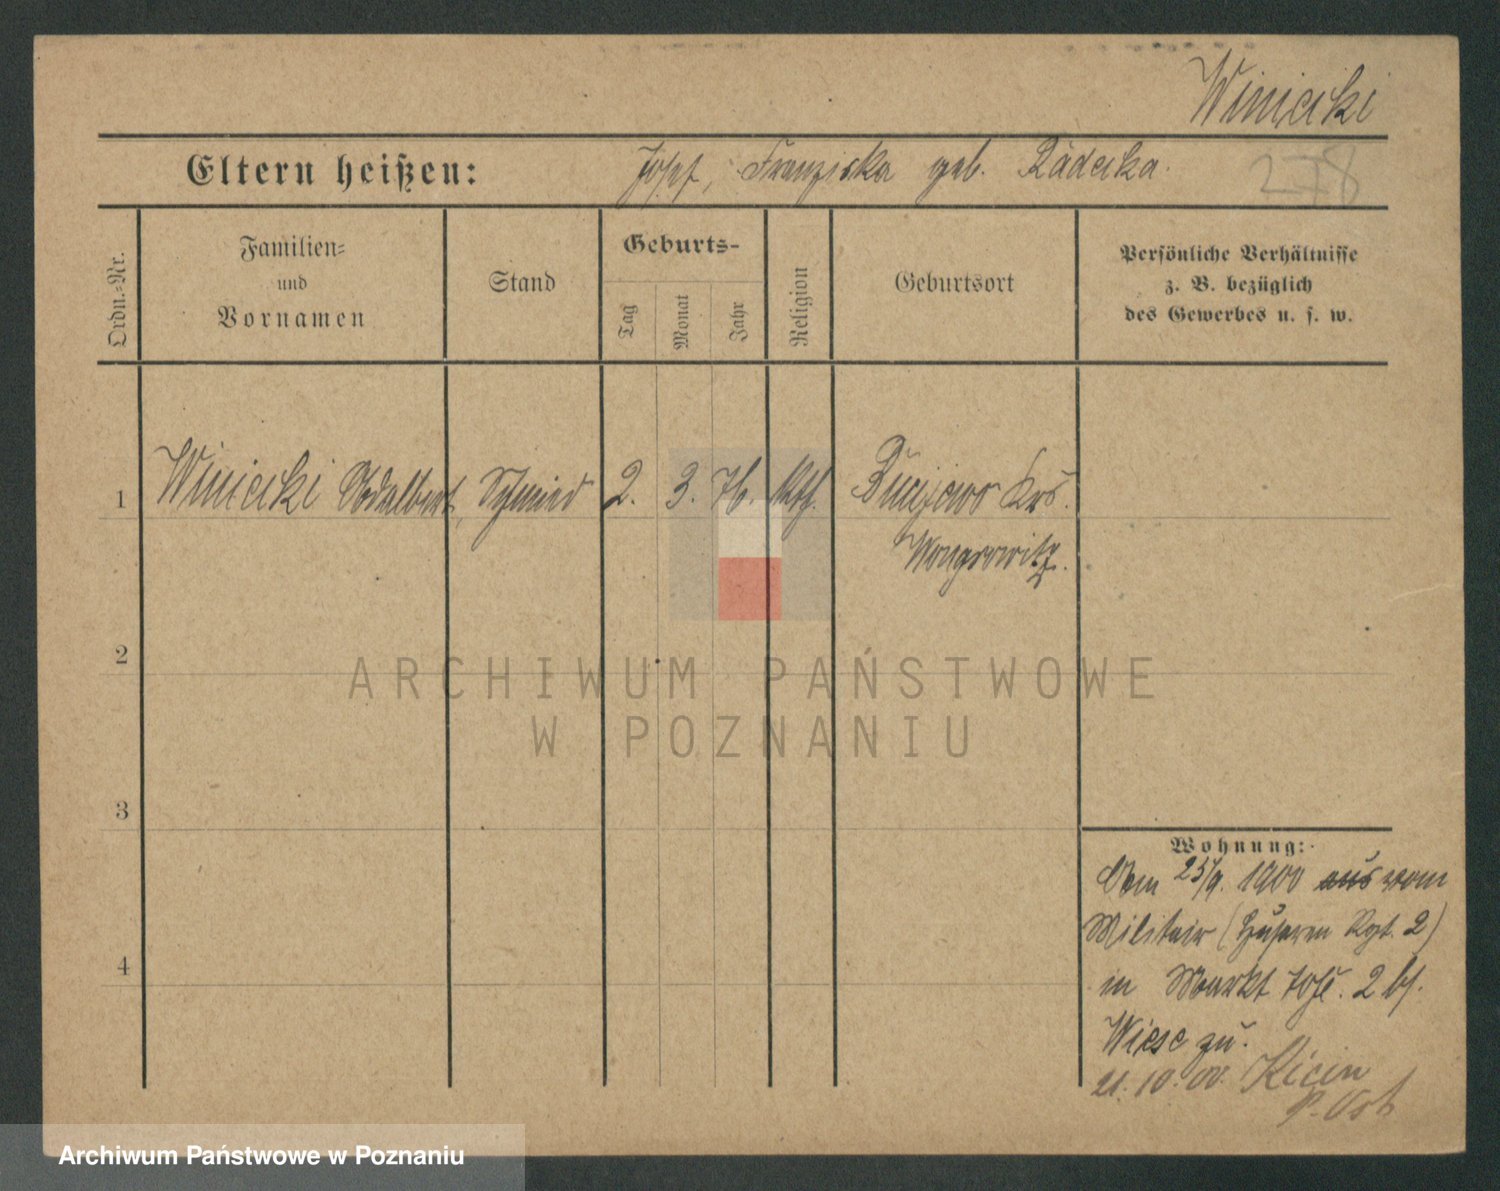 Winiecki
Eltern heißen: Josef, Franziska geb. Radecka.
278
Ordn.=Nr.
Familien=
und
Vornamen
Stand
Geburts-
Tag
Monat
Jahr
Religion
Geburtsort
Persönliche Verhältnisse
z. B. bezüglich
des Gewerbes u. s. w.
1 Winiecki Adalbert, Schmied 2. 3. 76. kth. Krs.
Wongrowitz.
2
3
4
Wohnung:
Am 25/9. 1900 aus vom
Militair (Husaren Rgt. 2)
in Markt 2 bf.
Wiese zu.
21. 10. 00. Kicin
P. Ost
ARCHIWUM PAŃSTWOWE
W POZNANIU
Archiwum Państwowe w Poznaniu